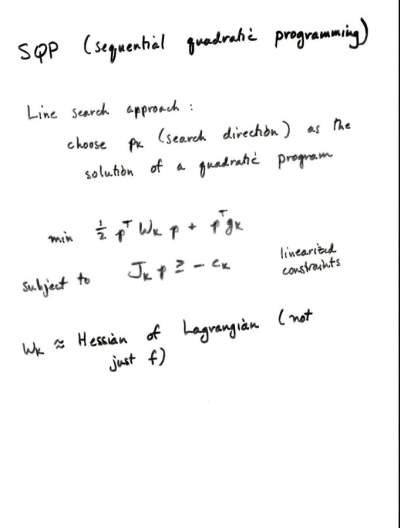 SQP (sequential quadratic programming)
Line search approach:
choose pₖ (search direction) as the
solution of a quadratic program
min ½ pᵀ Wₖ p + pᵀgₖ
subject to Jₖ p ≥ - cₖ linearized
constraints
Wₖ ≈ Hessian of Lagrangian (not
just f)